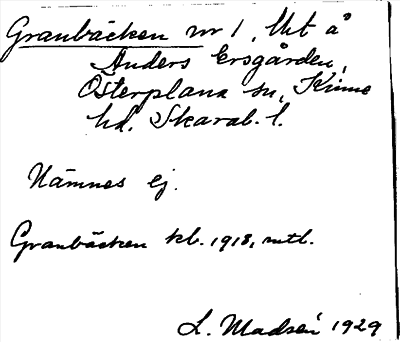 Granbäcken nr 1, Uht å
Anders Ersgården,
Österplana sn, Kinne
hd. Skarab. l.
Nämnes ej.
Granbäcken kb. 1918, mtl.
L. Madsén 1929